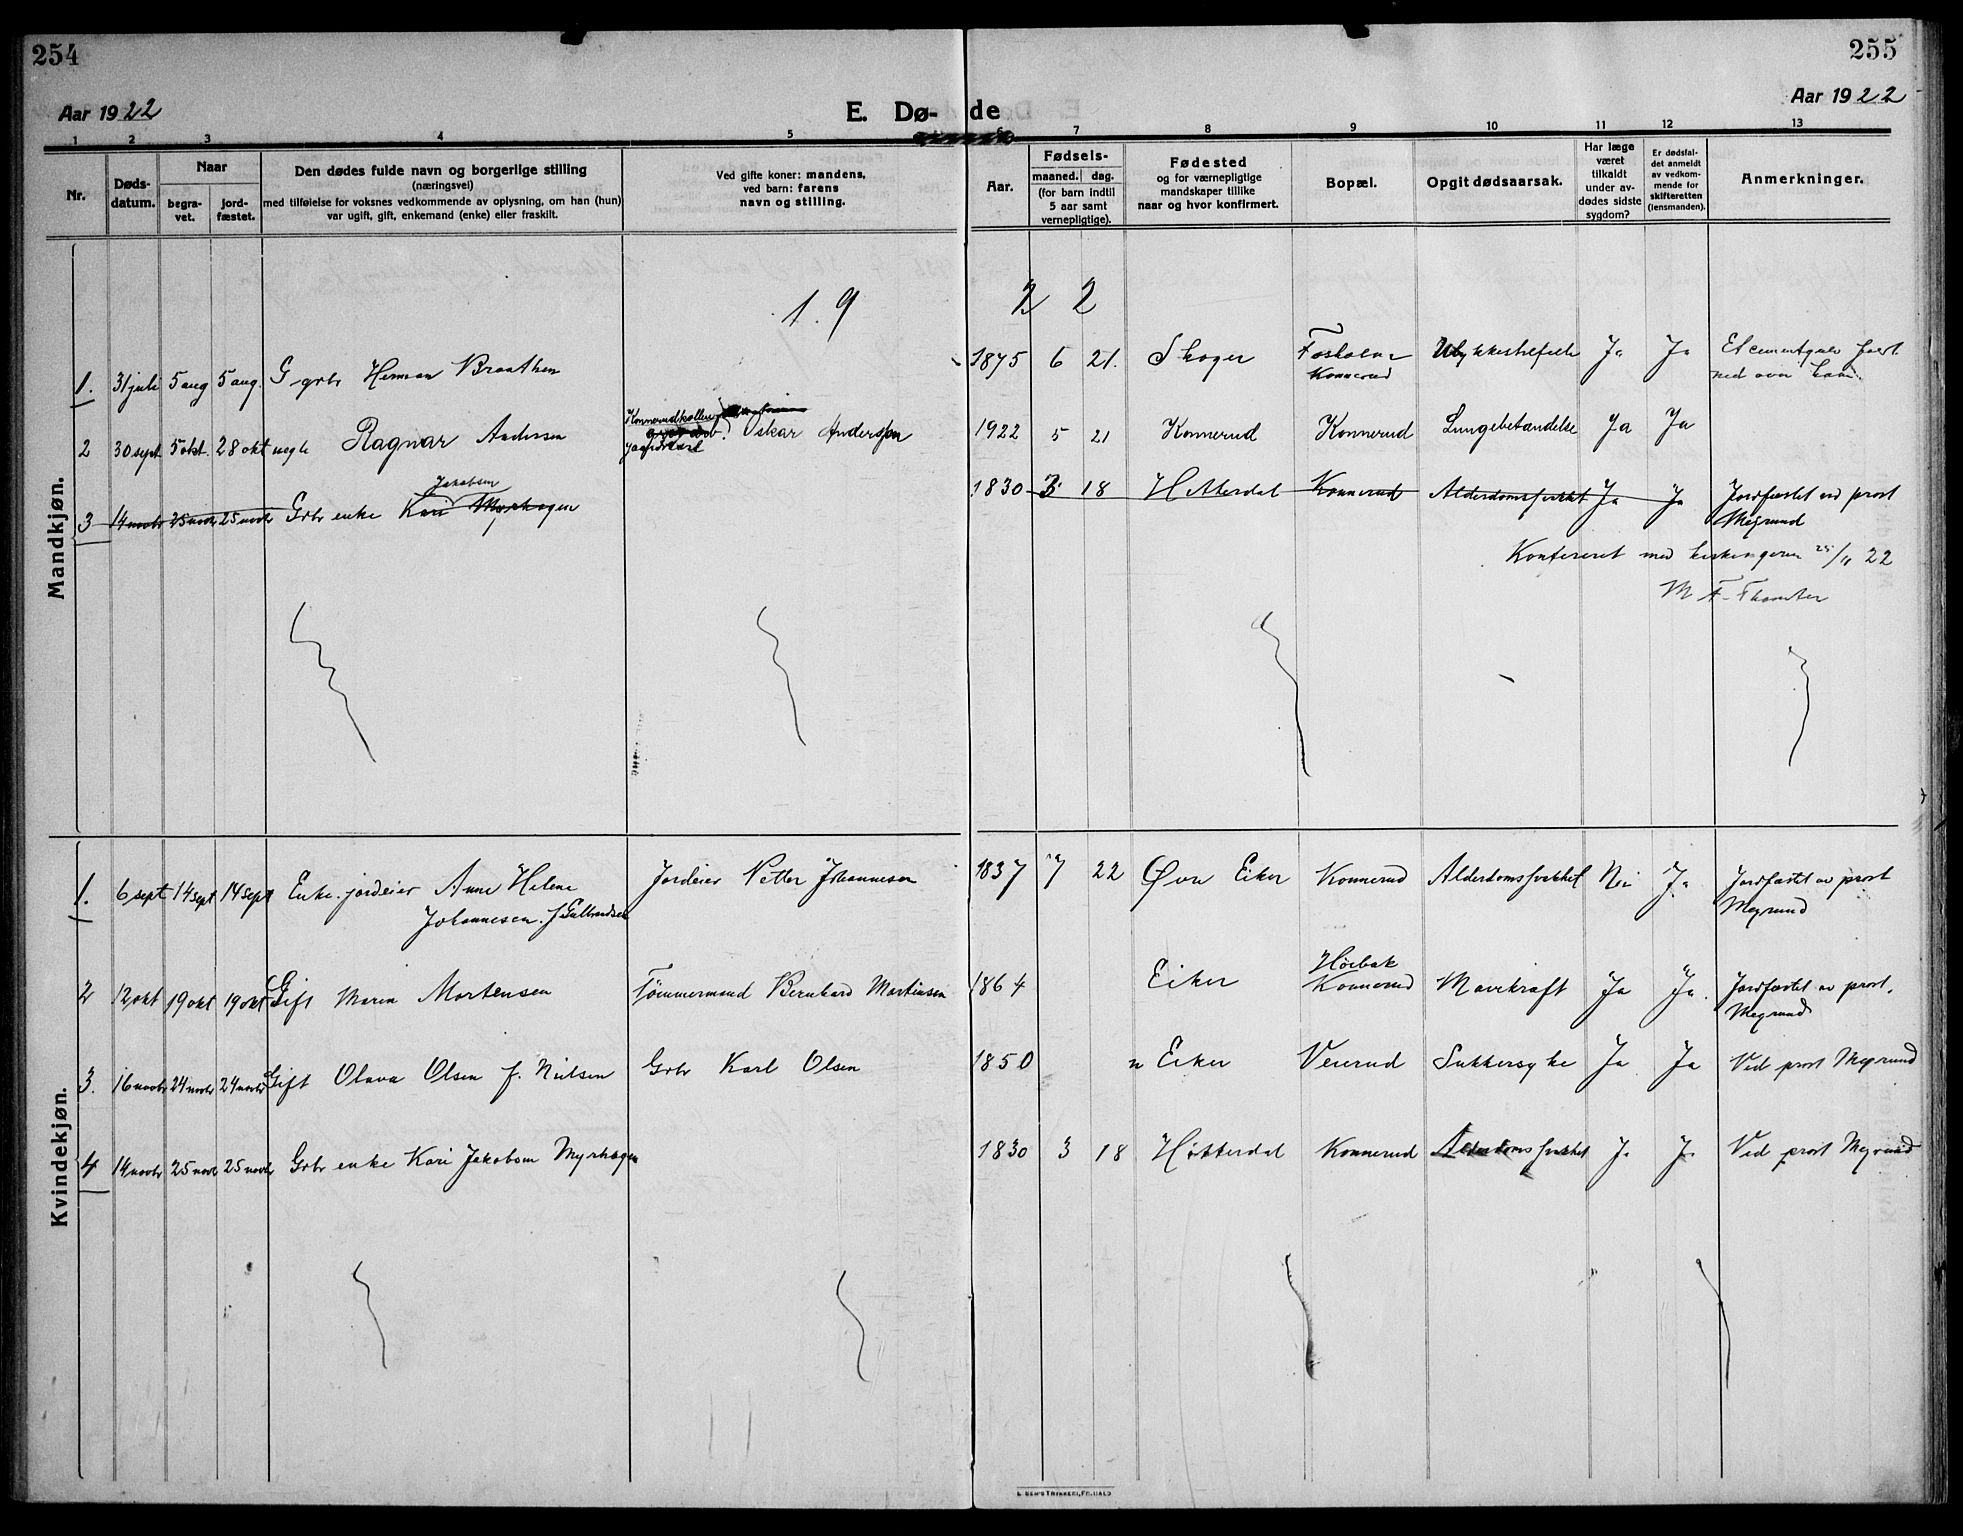 254
255
Aar 1922
E. Dø-
de
Aar 1922
1 2 3 4 5 6 7 8 9 10 11 12 13
Nr.
Døds-
datum.
Naar
begra-
vet.
jord-
fæstet.
Den dødes fulde navn og borgerlige stilling
(næringsvei)
med tilføielse for voksnes vedkommende av oplysning, om han (hun)
var ugift, gift, enkemand (enke) eller fraskilt.
Ved gifte koner: mandens,
ved barn: farens
navn og stilling.
Aar.
Fødsels-
maaned. dag.
(for barn indtil
5 aar samt
vernepligtige).
Fødested
og for værnepligtige
mandskaper tillike
naar og hvor konfirmert.
Bopæl.
Opgit dødsaarsak.
Har læge
været
tilkaldt
under av-
dødes sidste
sygdom?
Er dødsfal-
det anmeldt
av vedkom-
mende for
skifteretten
(lensmanden).
Anmerkninger.
Mandkjøn.
1. 9 2 2
1. 31 juli 5 aug 5 aug. G grbr Herman Braathen 1875 6 21. Skoger
Konnerud
Ulykkestilfelle Ja Ja
2 30 sept 5 okt. 28 okt uegte Ragnar Andersen
Konnerudkollen
Oskar Anderssen 1922 5 21 Konnerud Konnerud Lungebetændelse Ja Ja
3 14 novbr 25 novbr 25 novbr Grbr enke Kari Jakobsen Myrhagen 1830 3 18 Hitterdal Konnerud Alderdomssvakhet Ja Ja Jordfæstet av prost
Megrund
Konfereret med 25/11 22
M F. Thomter
Kvindekjøn.
1. 6 sept 14 sept 14 sept Enke. jordeier Anne Helene
Johannesen. f Gulbrandsen
Jordeier Petter Johannesen 1837 7 22 Øvre Eiker Konnerud Alderdomssvakhet Nei Ja Jordfæstet av prost
Megrund
2 12 okt 19 okt 19 okt Gift Maren Mortensen Tömmermand Bernhard Martinsen 1864 Eiker
Konnerud
Mavekræft Ja Ja. Jordfæstet av prost.
Megrund
3. 16 novbr 24 novbr 24 novbr Gift Olava Olsen f. Nielsen Grbr Karl Olsen 1850 N Eiker Veierud Sukkersyke Ja Ja Ved prost Megrund
4 14 novbr 25 novbr 25 novbr Grbr enke Kari Jakobsen Myrhagen 1830 3 18 Hitterdal Konnerud Alderdomssvakhet Ja Ja Ved prost Megrund